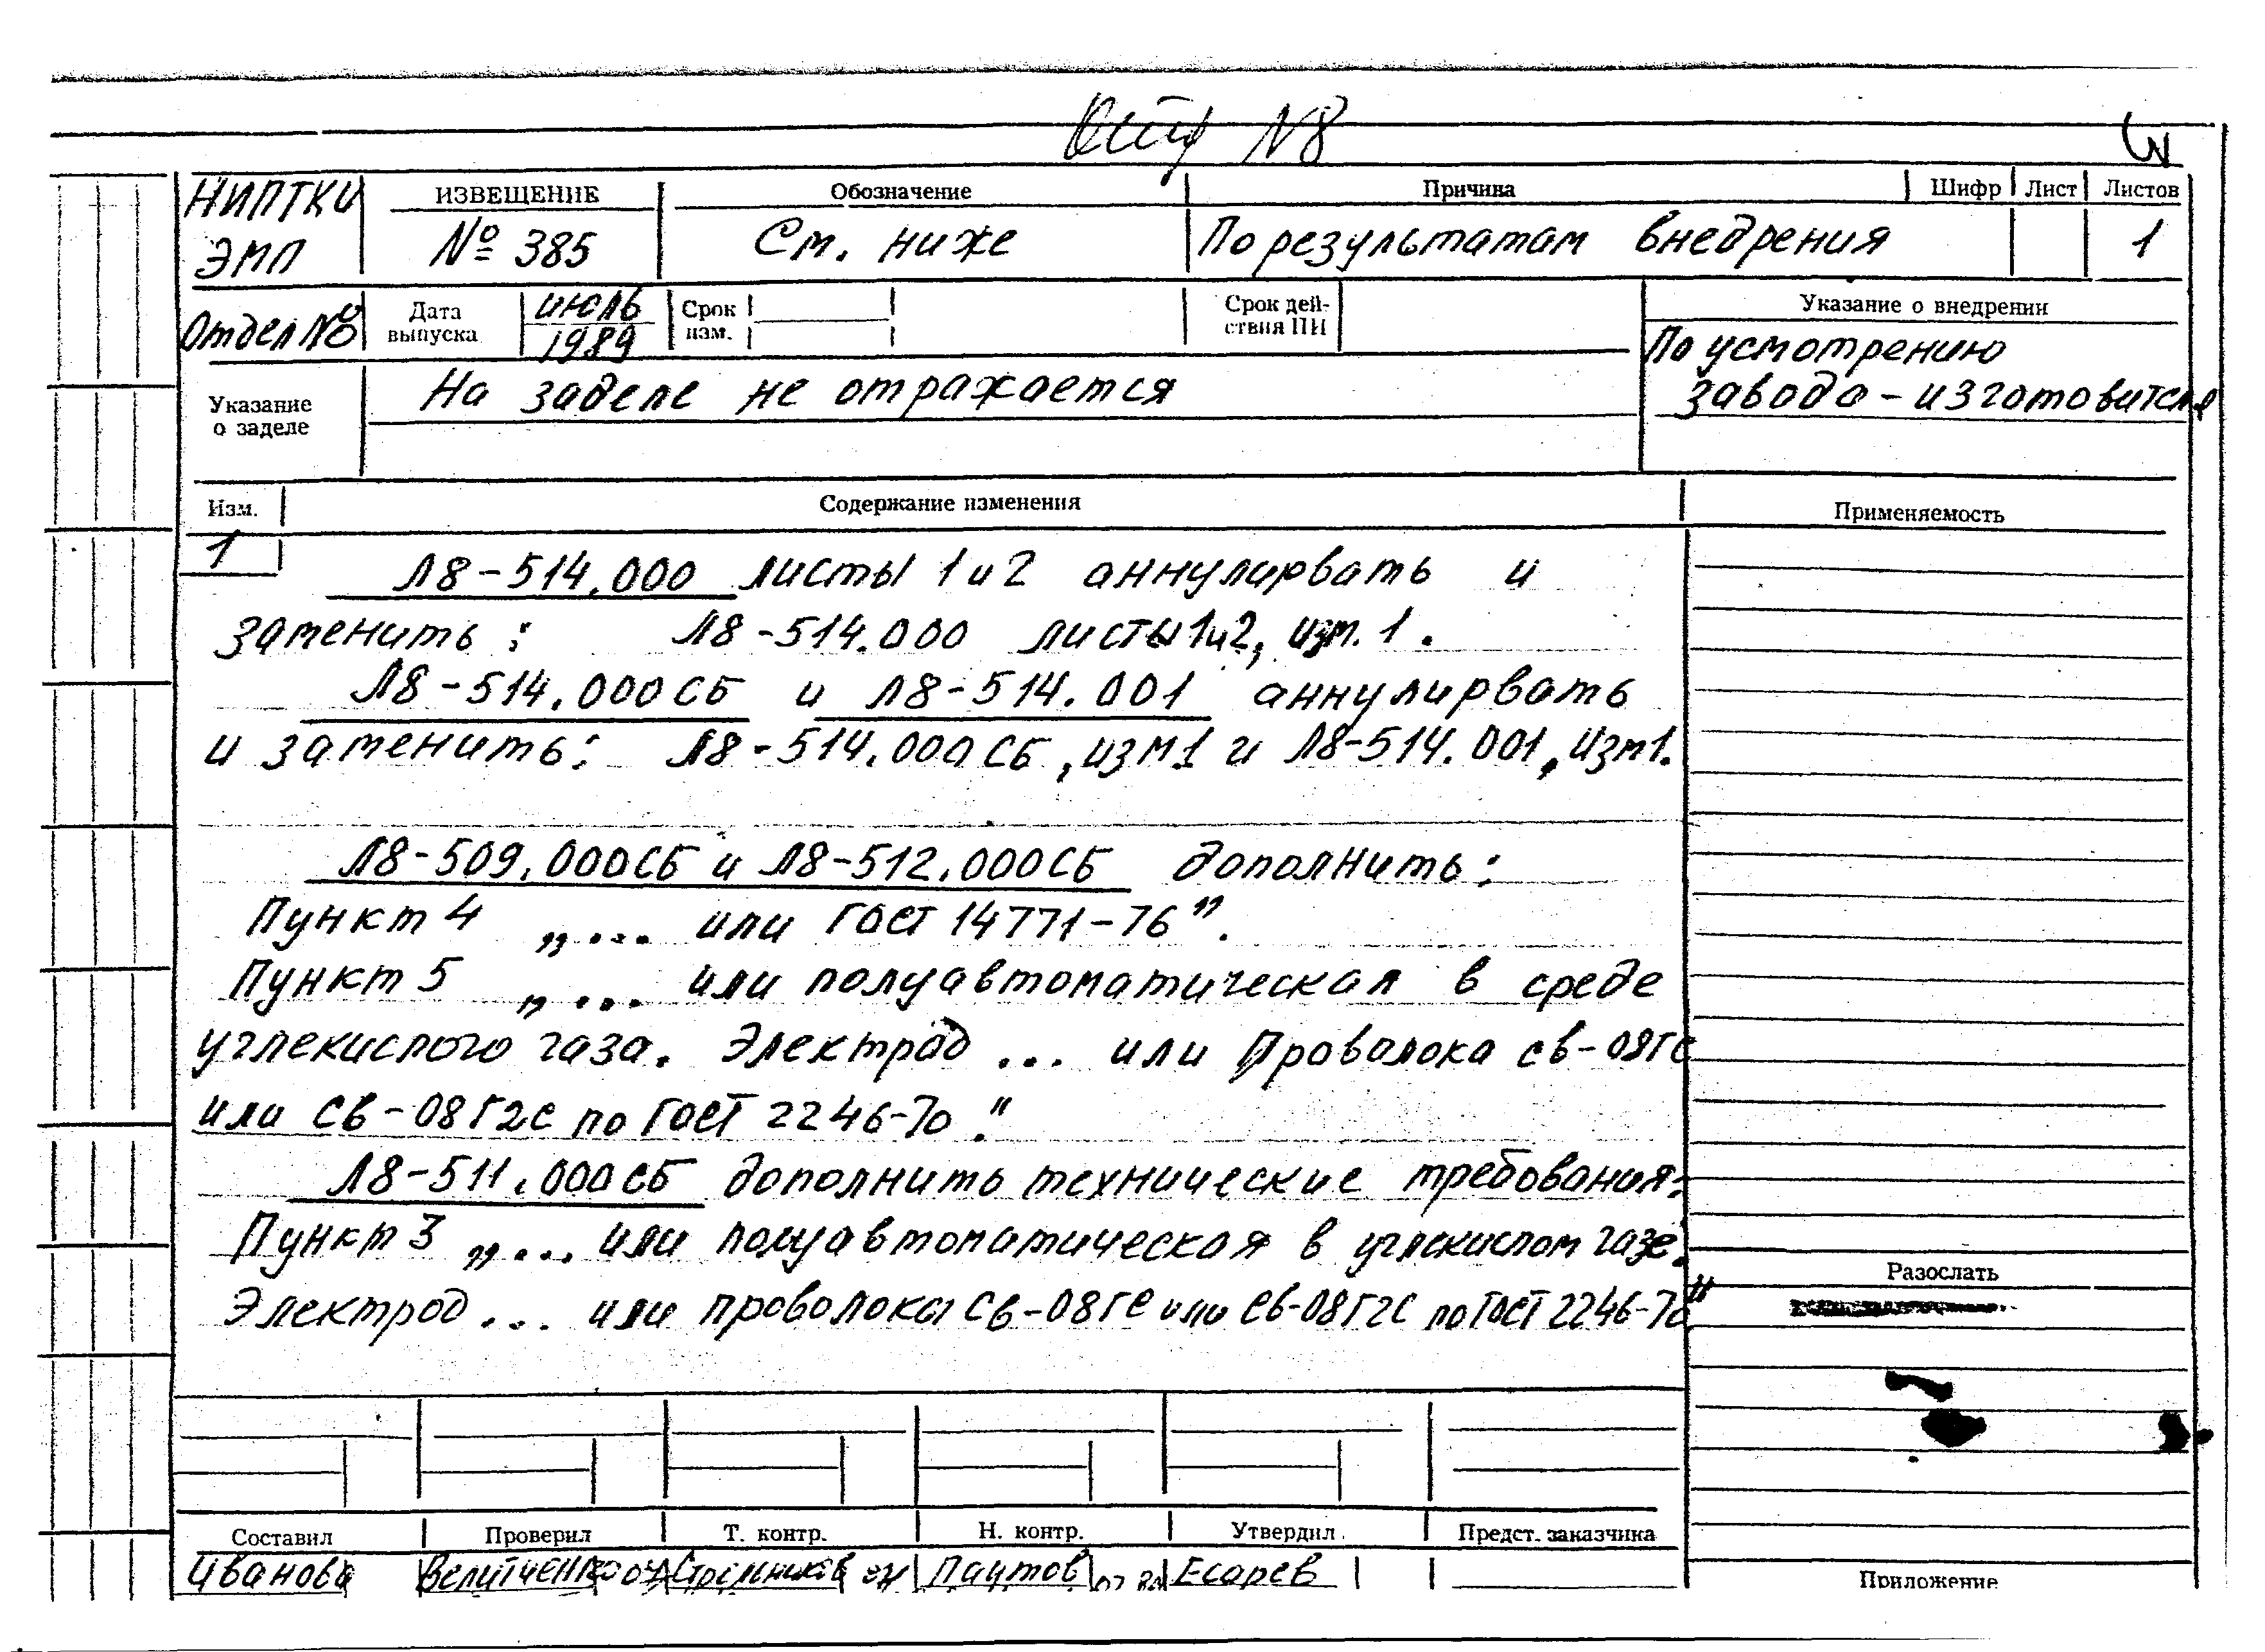 N8
НИПТКИ ИЗВЕЩЕНИЕ Обозначение Причина Шифр Лист Листов
ЭМП № 385 См. ниже По результатам внедрения 1
Отдел №8 Дата выпуска июль 1989 Срок изм. Срок действия ПИ Указание о внедрении
По усмотрению
завода-изготовителя
Указание о заделе На заделе не отражается
Изм. Содержание изменения Применяемость
1
Л8-514.000 листы 1 и 2 аннулирвать и
заменить: Л8-514.000 листы 1и2, изм. 1.
Л8-514.000СБ и Л8-514.001 аннулирвать
и заменить: Л8-514.000СБ, изм1 и Л8-514.001, изм1.
Л8-509.000СБ и Л8-512.000СБ дополнить:
Пункт 4 „... или ГОСТ 14771-76".
Пункт 5 „... или полуавтоматическая в среде
углекислого газа. Электрод ... или Проволока св-08ГС
или Св-08Г2С по ГОСТ 2246-70."
Л8-511.000СБ дополнить технические требования:
Пункт 3 „... или полуавтоматическая в углекислом газе.
Электрод ... или проволока Св-08ГС или Св-08Г2С по ГОСТ 2246-70"
Разослать
Составил Проверил Т. контр. Н. контр. Утвердил. Предст. заказчика
Иванова Стрельников Паутов Есарев
Приложение